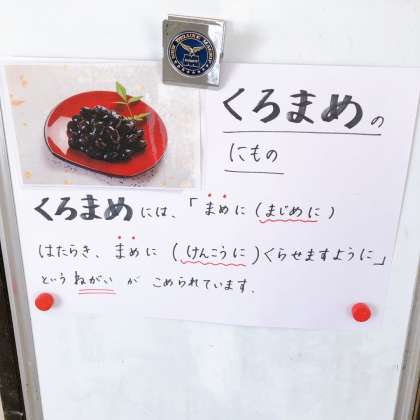 くろまめの
にもの
くろまめには、「まめに(まじめに)
はたらき、まめに(けんこうに)くらせますように」
というねがいがこめられています。